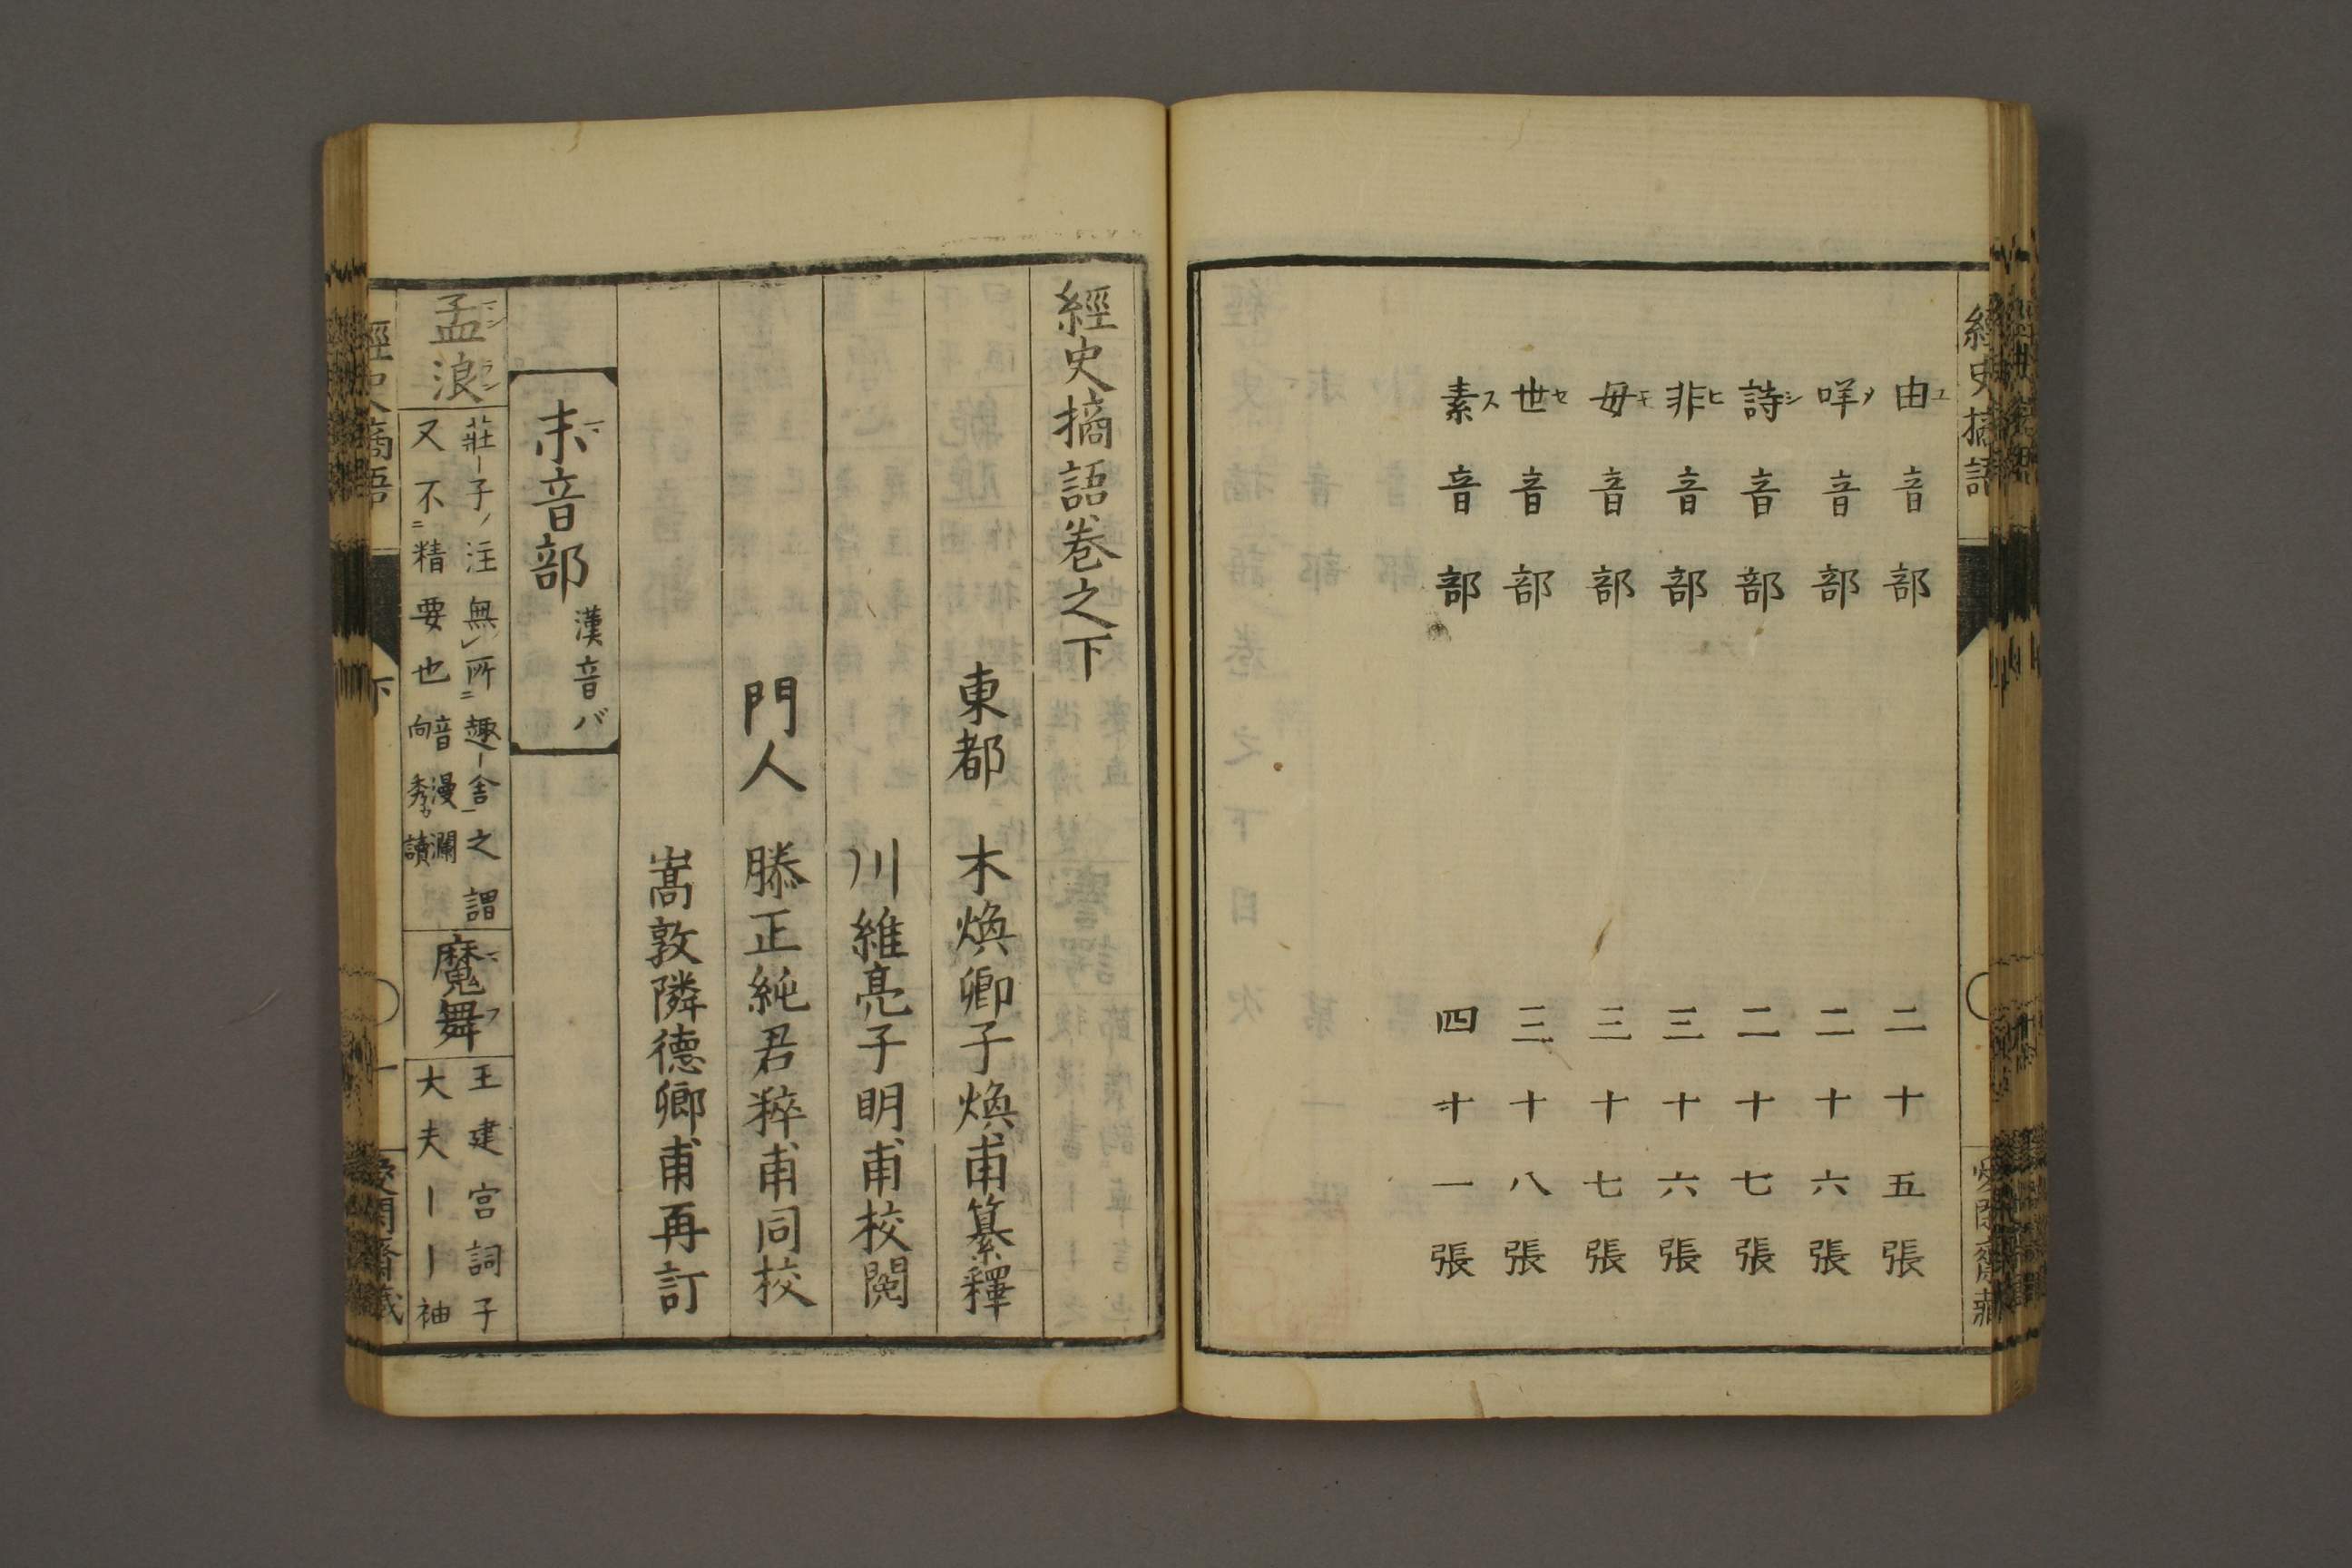 經史摘語
愛閑齋藏
由ユ音部 二十五張
咩メ音部 二十六張
詩シ音部 二十七張
非ヒ音部 三十六張
毋モ音部 三十七張
世セ音部 三十八張
素ス音部 四十一張
經史摘語卷之下
東都 木煥卿子煥甫纂釋
川維亮子明甫校閲
門人 滕正純君粹甫同校
嵩敦隣德卿甫再訂
末マ音部 漢音バ
孟マン浪ラン
莊子ノ注無所趣舍之謂
又不精要也音漫瀾向秀讀
魔マ舞フ
王建宮詞子
大夫｜｜袖
經史摘語 下 一 愛閑齋藏